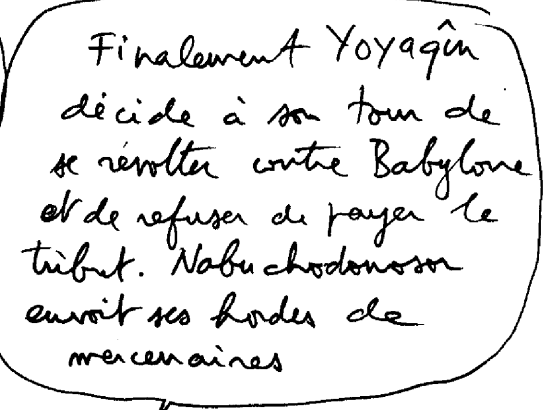 Finalement Yoyaqîn
décide à son tour de
se révolter contre Babylone
et de refuser de payer le
tribut. Nabuchodonosor
envoit ses hordes de
mercenaires